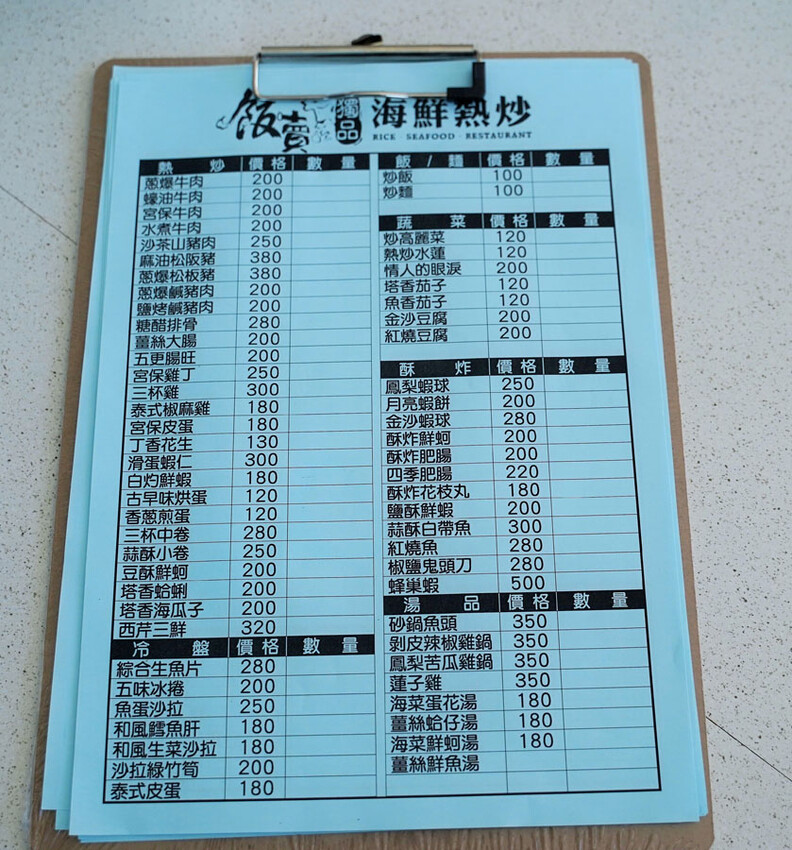 飯賣 獨品 海鮮熱炒
RICE · SEAFOOD · RESTAURANT
熱炒 價格 數量
蔥爆牛肉 200
蠔油牛肉 200
宮保牛肉 200
水煮牛肉 200
沙茶山豬肉 250
麻油松阪豬 380
蔥爆松板豬 380
蔥爆鹹豬肉 200
鹽烤鹹豬肉 200
糖醋排骨 280
薑絲大腸 200
五更腸旺 200
宮保雞丁 250
三杯雞 300
泰式椒麻雞 180
宮保皮蛋 180
丁香花生 130
滑蛋蝦仁 300
白灼鮮蝦 180
古早味烘蛋 120
香蔥煎蛋 120
三杯中卷 280
蒜酥小卷 250
豆酥鮮蚵 200
塔香蛤蜊 200
塔香海瓜子 200
西芹三鮮 320
冷盤 價格 數量
綜合生魚片 280
五味冰捲 200
魚蛋沙拉 250
和風鱈魚肝 180
和風生菜沙拉 180
沙拉綠竹筍 200
泰式皮蛋 180
飯/麵 價格 數量
炒飯 100
炒麵 100
蔬菜 價格 數量
炒高麗菜 120
熱炒水蓮 120
情人的眼淚 200
塔香茄子 120
魚香茄子 120
金沙豆腐 200
紅燒豆腐 200
酥炸 價格 數量
鳳梨蝦球 250
月亮蝦餅 200
金沙蝦球 280
酥炸鮮蚵 200
酥炸肥腸 200
四季肥腸 220
酥炸花枝丸 180
鹽酥鮮蝦 200
蒜酥白帶魚 300
紅燒魚 280
椒鹽鬼頭刀 280
蜂巢蝦 500
湯品 價格 數量
砂鍋魚頭 350
剝皮辣椒雞鍋 350
鳳梨苦瓜雞鍋 350
蓮子雞 350
海菜蛋花湯 180
薑絲蛤仔湯 180
海菜鮮蚵湯 180
薑絲鮮魚湯